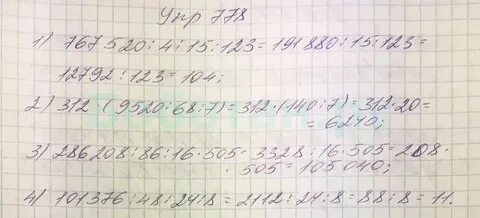 Упр 778
1) 767 520 : 4 : 15 : 123 = 191 880 : 15 : 123 =
12792 : 123 = 104;
2) 312 · (9520 : 68 : 7) = 312 · (140 : 7) = 312 · 20 =
= 6240;
3) 286 208 : 86 : 16 · 505 = 3328 : 16 · 505 = 208 ·
· 505 = 105 040;
4) 101 376 : 48 : 24 : 8 = 2112 : 24 : 8 = 88 : 8 = 11.